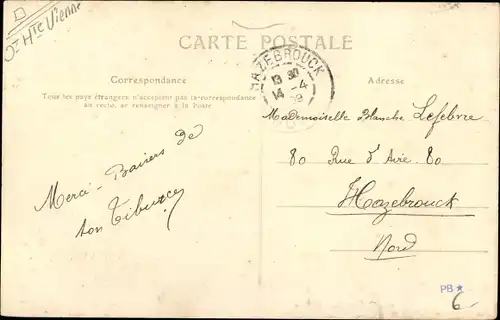 Hte Vienne
CARTE POSTALE
Correspondance
Tous les pays étrangers n'acceptent pas la correspondance
au recto, se renseigner à la Poste
Adresse
HAZEBROUCK
13 30
14 -4
Mademoiselle Blanche Lefebvre
80 Rue d'Aire 80
Hazebrouck
Nord
Merci - Baisers de
ton Tiburce
PB*
6